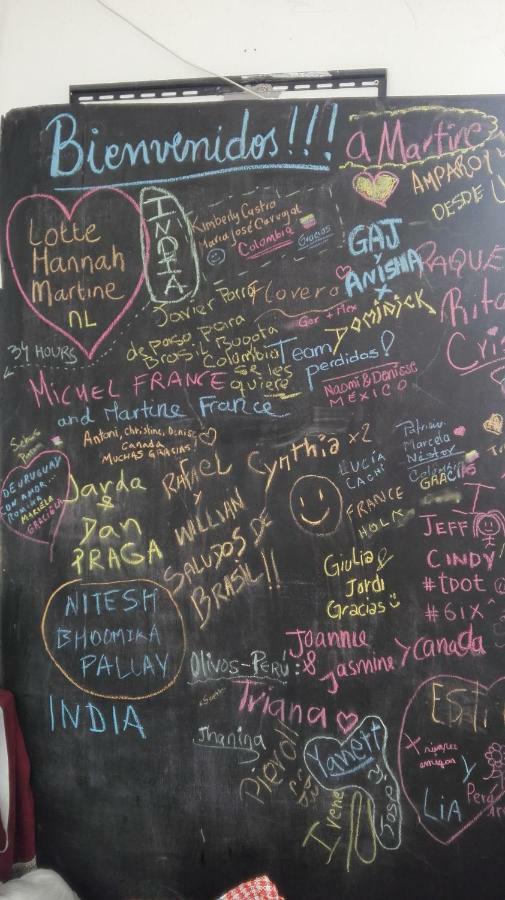 Bienvenidos!!!
a Martire
AMPARO Y
DESDE
Lotte
Hannah
Martine
NL
INDIA
Kimberly Castro
Maria José Carvajal
Colombia
Gracias
GAJ
Y
ANISHA
Javier Parra
de paso para
Brasil Bogota
Colombia
se les
quiere
Team
perdidos!
DOMINICK
RAQUE
Rita
Cris
34 HOURS
Naomi & Denisse
MEXICO
MICHEL FRANCE
and Martine France
Antoni, Christine, Denise
Canada
MUCHAS GRACIAS!
DE URUGUAY
CON AMOR...
ROMINA
MARIELA
GRACIELA
Jarda
&
Dan
PRAGA
RAFAEL
Y
WILLIAN
SALUDOS DE
BRASIL!!
Cynthia x2
LUCÍA
CACHI
FRANCE
HOLA
Patricia
Marcela
Néstor
Colombia
GRACIAS
I
JEFF
CINDY
#tDOt
#6IX
Giulia &
Jordi
Gracias
NITESH
BHOOMIKA
PALLAV
INDIA
Olivos-Perú:
Joanne
& Jasmine y Canada
Triana
Jhanina
Pierol
Yanett
Jose y
Irene
ESt
amigas
y
LiA
Perú